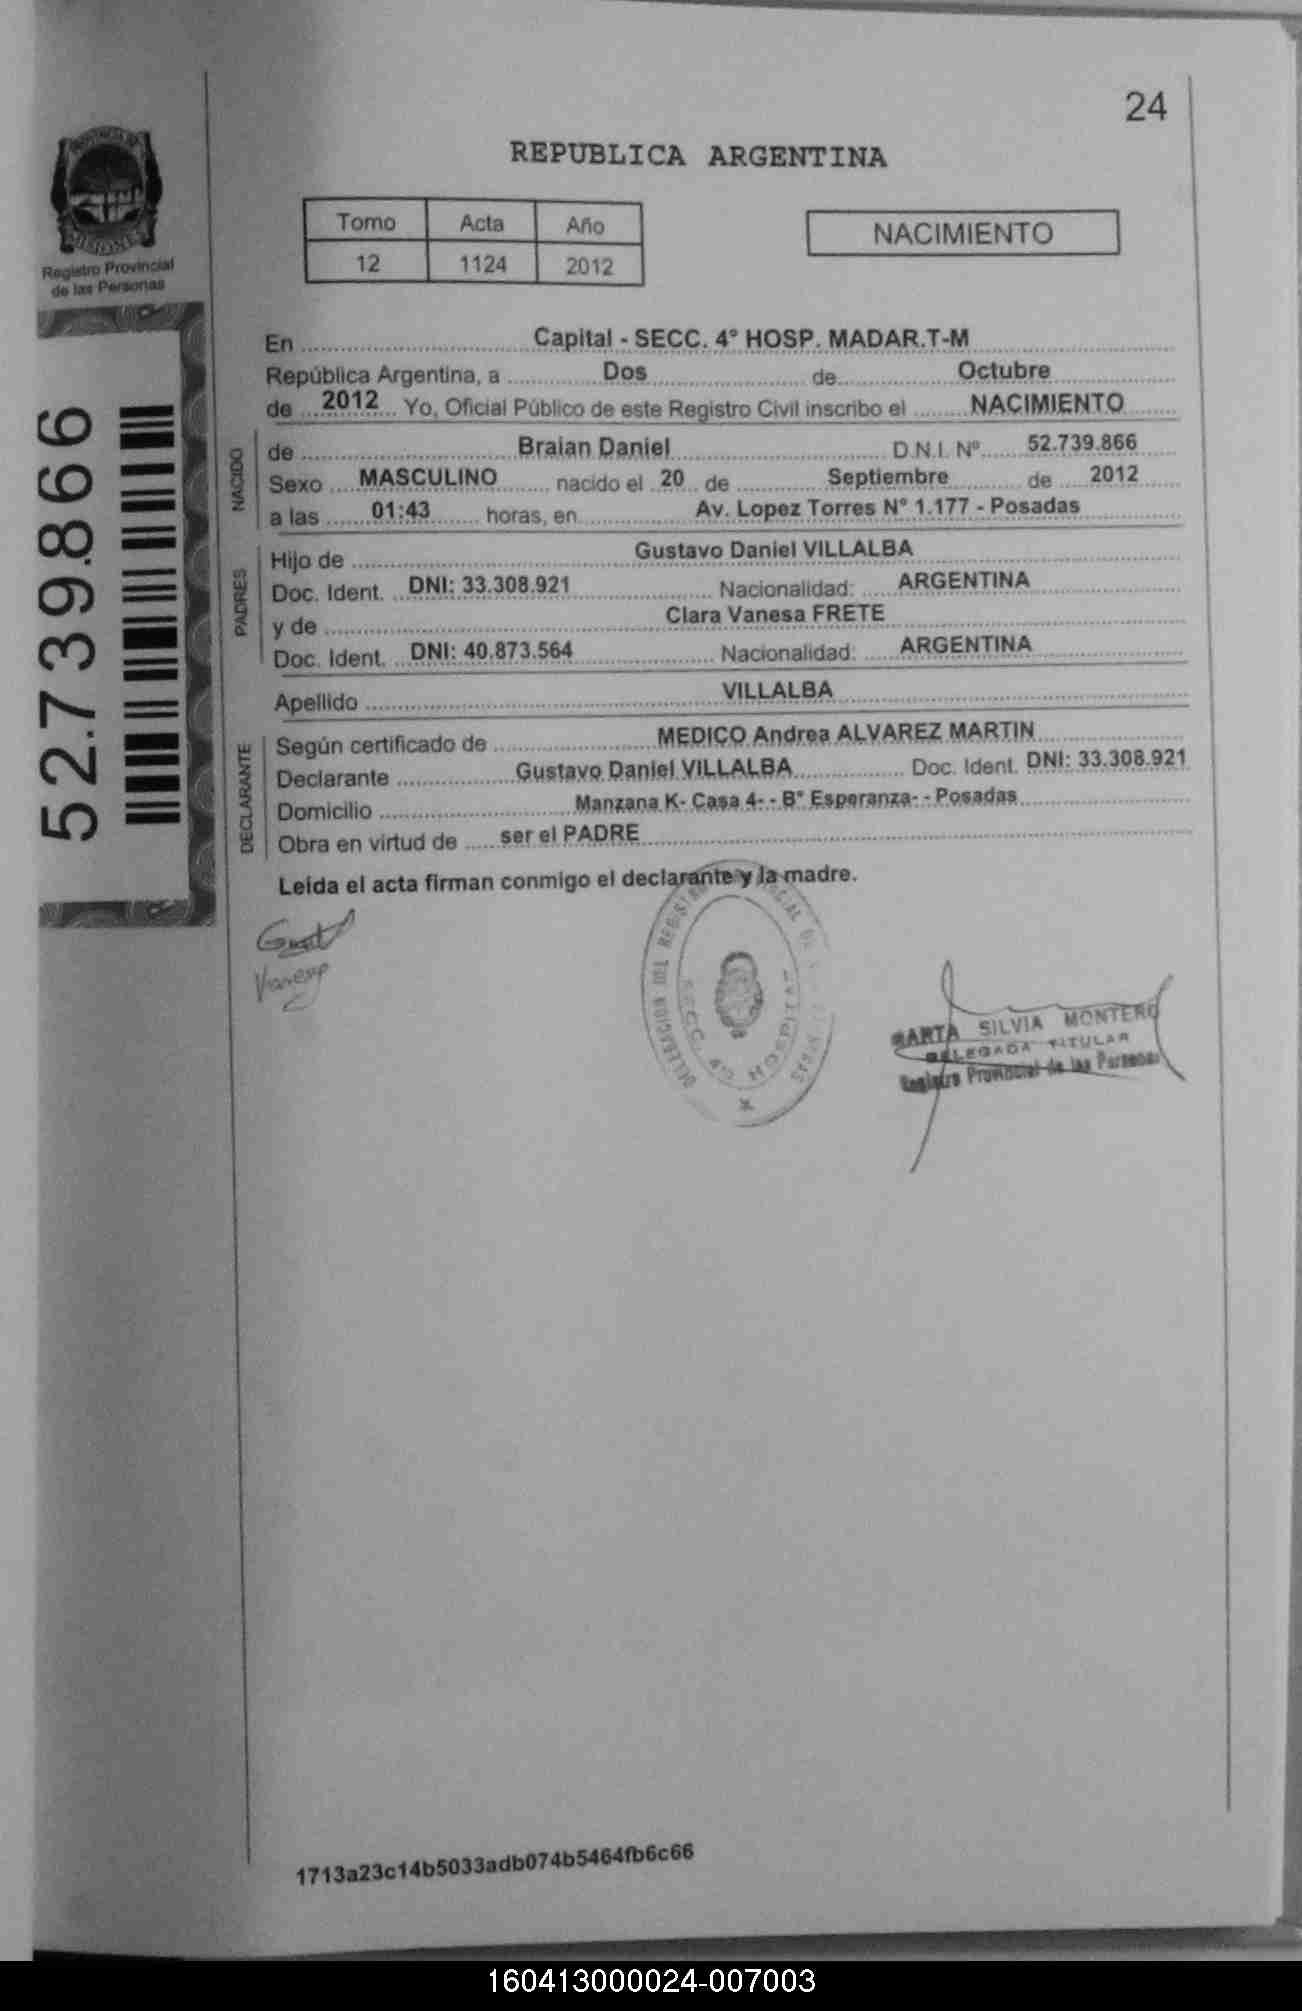 24
REPUBLICA ARGENTINA
PROVINCIA DE
MISIONES
Registro Provincial
de las Personas
Tomo Acta Año
12 1124 2012
NACIMIENTO
52.739.866
En Capital - SECC. 4° HOSP. MADAR.T-M
República Argentina, a Dos de Octubre
de 2012 Yo, Oficial Público de este Registro Civil inscribo el NACIMIENTO
NACIDO
de Braian Daniel D.N.I. Nº 52.739.866
Sexo MASCULINO nacido el 20 de Septiembre de 2012
a las 01:43 horas, en Av. Lopez Torres N° 1.177 - Posadas
PADRES
Hijo de Gustavo Daniel VILLALBA
Doc. Ident. DNI: 33.308.921 Nacionalidad: ARGENTINA
y de Clara Vanesa FRETE
Doc. Ident. DNI: 40.873.564 Nacionalidad: ARGENTINA
Apellido VILLALBA
DECLARANTE
Según certificado de MEDICO Andrea ALVAREZ MARTIN
Declarante Gustavo Daniel VILLALBA Doc. Ident. DNI: 33.308.921
Domicilio Manzana K- Casa 4- - B° Esperanza- - Posadas
Obra en virtud de ser el PADRE
Leída el acta firman conmigo el declarante y la madre.
Vanesa
DELEGACION DEL REGISTRO
SECC. 4° HOSPITAL
MARTA SILVIA MONTERO
DELEGADA TITULAR
Registro Provincial de las Personas
1713a23c14b5033adb074b5464fb6c66
160413000024-007003